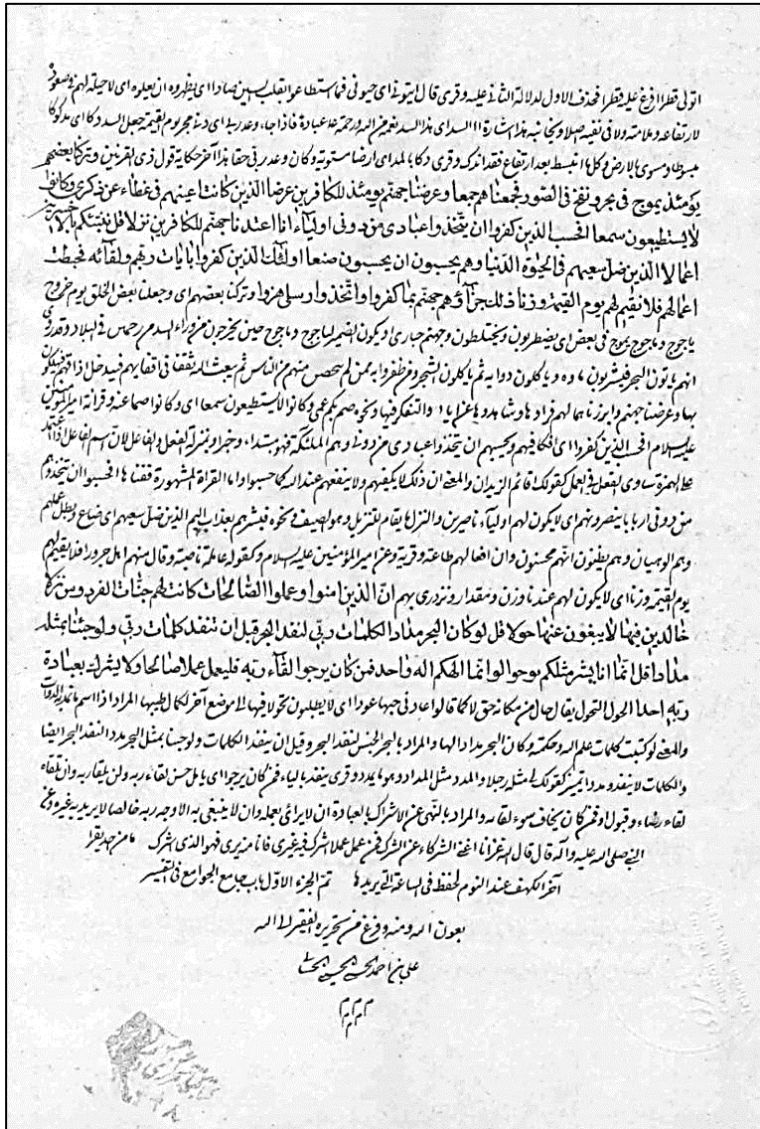 اتوني قطرا افرغ عليه قطرا فحذف الاول لدلالة الثاني عليه وقرئ قال ايتوني اى جيوني فما استطاعوا بقلب السين صادا اى يظهروه ان يعلوه اى لا حيلة لهم صعود
لارتفاعه وملامته ولا نقبه لصلابته وثخانته هذا اشارة الى السد اى هذا السد نعمة من الله ورحمة على عباده فاذا جاء وعد ربى اى دنا مجىء يوم القيمة جعل السد دكا اى مدكوكا
مبسوطا مسوى بالارض وكلما انبسط بعد ارتفاع فقد اندك وقرئ دكاء بالمد اى ارضا مستوية وكان وعد ربى حقا هذا آخر حكاية قول ذى القرنين وتركنا بعضهم
يومئذ يموج فى بعض ونفخ فى الصور فجمعناهم جمعا وعرضنا جهنم يومئذ للكافرين عرضا الذين كانت اعينهم فى غطاء عن ذكرى وكانوا
لا يستطيعون سمعا افحسب الذين كفروا ان يتخذوا عبادى من دونى اولياء انا اعتدنا جهنم للكافرين نزلا قل هل ننبئكم بالاخسرين
اعمالا الذين ضل سعيهم فى الحيوة الدنيا وهم يحسبون انهم يحسنون صنعا اولئك الذين كفروا بايات ربهم ولقائه فحبطت
اعمالهم فلا نقيم لهم يوم القيمة وزنا ذلك جزاؤهم جهنم بما كفروا واتخذوا ورسلى هزوا وتركنا بعضهم اى وجعلنا بعض الخلق يوم خروج
ياجوج وماجوج يموج فى بعض اى يضطربون ويختلطون حيارى او يكون الضمير لياجوج وماجوج حين يخرجون من وراء السد مزدحمين فى البلاد وقد روى
انهم ياتون البحر فيشربون ماءه وياكلون دوابه ثم ياكلون الشجر ومن ظفروا به ممن لم يتحصن منهم من الناس ثم يبعث الله نغفا فى اقفائهم فيدخل اذانهم فيهلكون
بها وعرضنا جهنم وابرزناها لهم فراوها وشاهدوها عن اياتى والتفكر فيها ونحوه صم بكم عمى وكانوا لا يستطيعون سمعا اى وكانوا صما عنه وقراءة امير المؤمنين
عليه السلام افحسب الذين كفروا اى افكافيهم ومحسبهم ان يتخذوا عبادى من دونى وهم الملئكة فهو مبتداء وخبر او بمنزلة الفعل والفاعل لان اسم الفاعل اذا اعتمد
على الهمزة ساوى الفعل فى العمل كقولك اقائم الزيدان والمعنى ان ذلك لا يكفيهم ولا ينفعهم عند الله كما حسبوا واما القراءة المشهورة فمعناها افحسبوا ان يتخذوهم
من دونى اربابا ينصرونهم اى لا يكون لهم اولياء ناصرين والنزل ما يقام للنزيل وهو الضيف ونحوه فبشرهم بعذاب اليم الذين ضل سعيهم اى ضاع وبطل عملهم
وهم الرهبان وهم يظنون انهم محسنون وان افعالهم طاعة وقربة وعن امير المؤمنين عليه السلام هو كقوله عاملة ناصبة وقال منهم اهل حروراء فلا نقيم لهم
يوم القيمة وزنا اى لا يكون لهم عندنا وزن ومقدار ونزدرى بهم ان الذين امنوا وعملوا الصالحات كانت لهم جنات الفردوس نزلا
خالدين فيها لا يبغون عنها حولا قل لو كان البحر مدادا لكلمات ربى لنفد البحر قبل ان تنفد كلمات ربى ولو جئنا بمثله
مددا قل انما انا بشر مثلكم يوحى الى انما الهكم اله واحد فمن كان يرجوا لقاء ربه فليعمل عملا صالحا ولا يشرك بعبادة
ربه احدا الحول التحول يقال حال من مكانه حولا كما قالوا عاد فى حبها عودا اى لا يطلبون تحولا فيها الى موضع آخر لكمال طيبها المداد اسم ما تمد به الدواة
والمعنى لو كتبت كلمات علم الله وحكمته وكان البحر مدادا لها والمراد بالبحر الجنس لنفد البحر قبل ان ينفد الكلمات ولو جئنا بمثل البحر مددا لنفد البحر ايضا
والكلمات لا ينفد ومددا تمييز كقولك لى مثله رجلا والمدد مثل المداد وهو ما يمد به وقرئ ينفد بالياء فمن كان يرجوا اى يامل حسن لقاء ربه وان يلقاه
لقاء رضاء وقبول او فمن كان يخاف سوء لقائه والمراد بالنهى عن الاشراك بالعبادة ان لا يرائى بعمله وان لا يبتغى به الا وجه ربه خالصا لا يريد به غيره وعن
النبى صلى الله عليه وآله قال قال الله عز انا اغنى الشركاء عن الشرك فمن عمل عملا اشرك فيه غيرى فانا منه برئ فهو للذى اشرك ما من عبد يقرا
آخر الكهف عند النوم الا تيقظ فى الساعة التى يريدها تم الجزء الاول من كتاب جامع الجوامع فى تفسير
بعون الله ومنه وفرغ من تحريره الفقير الى الله
على بن احمد
م م م م